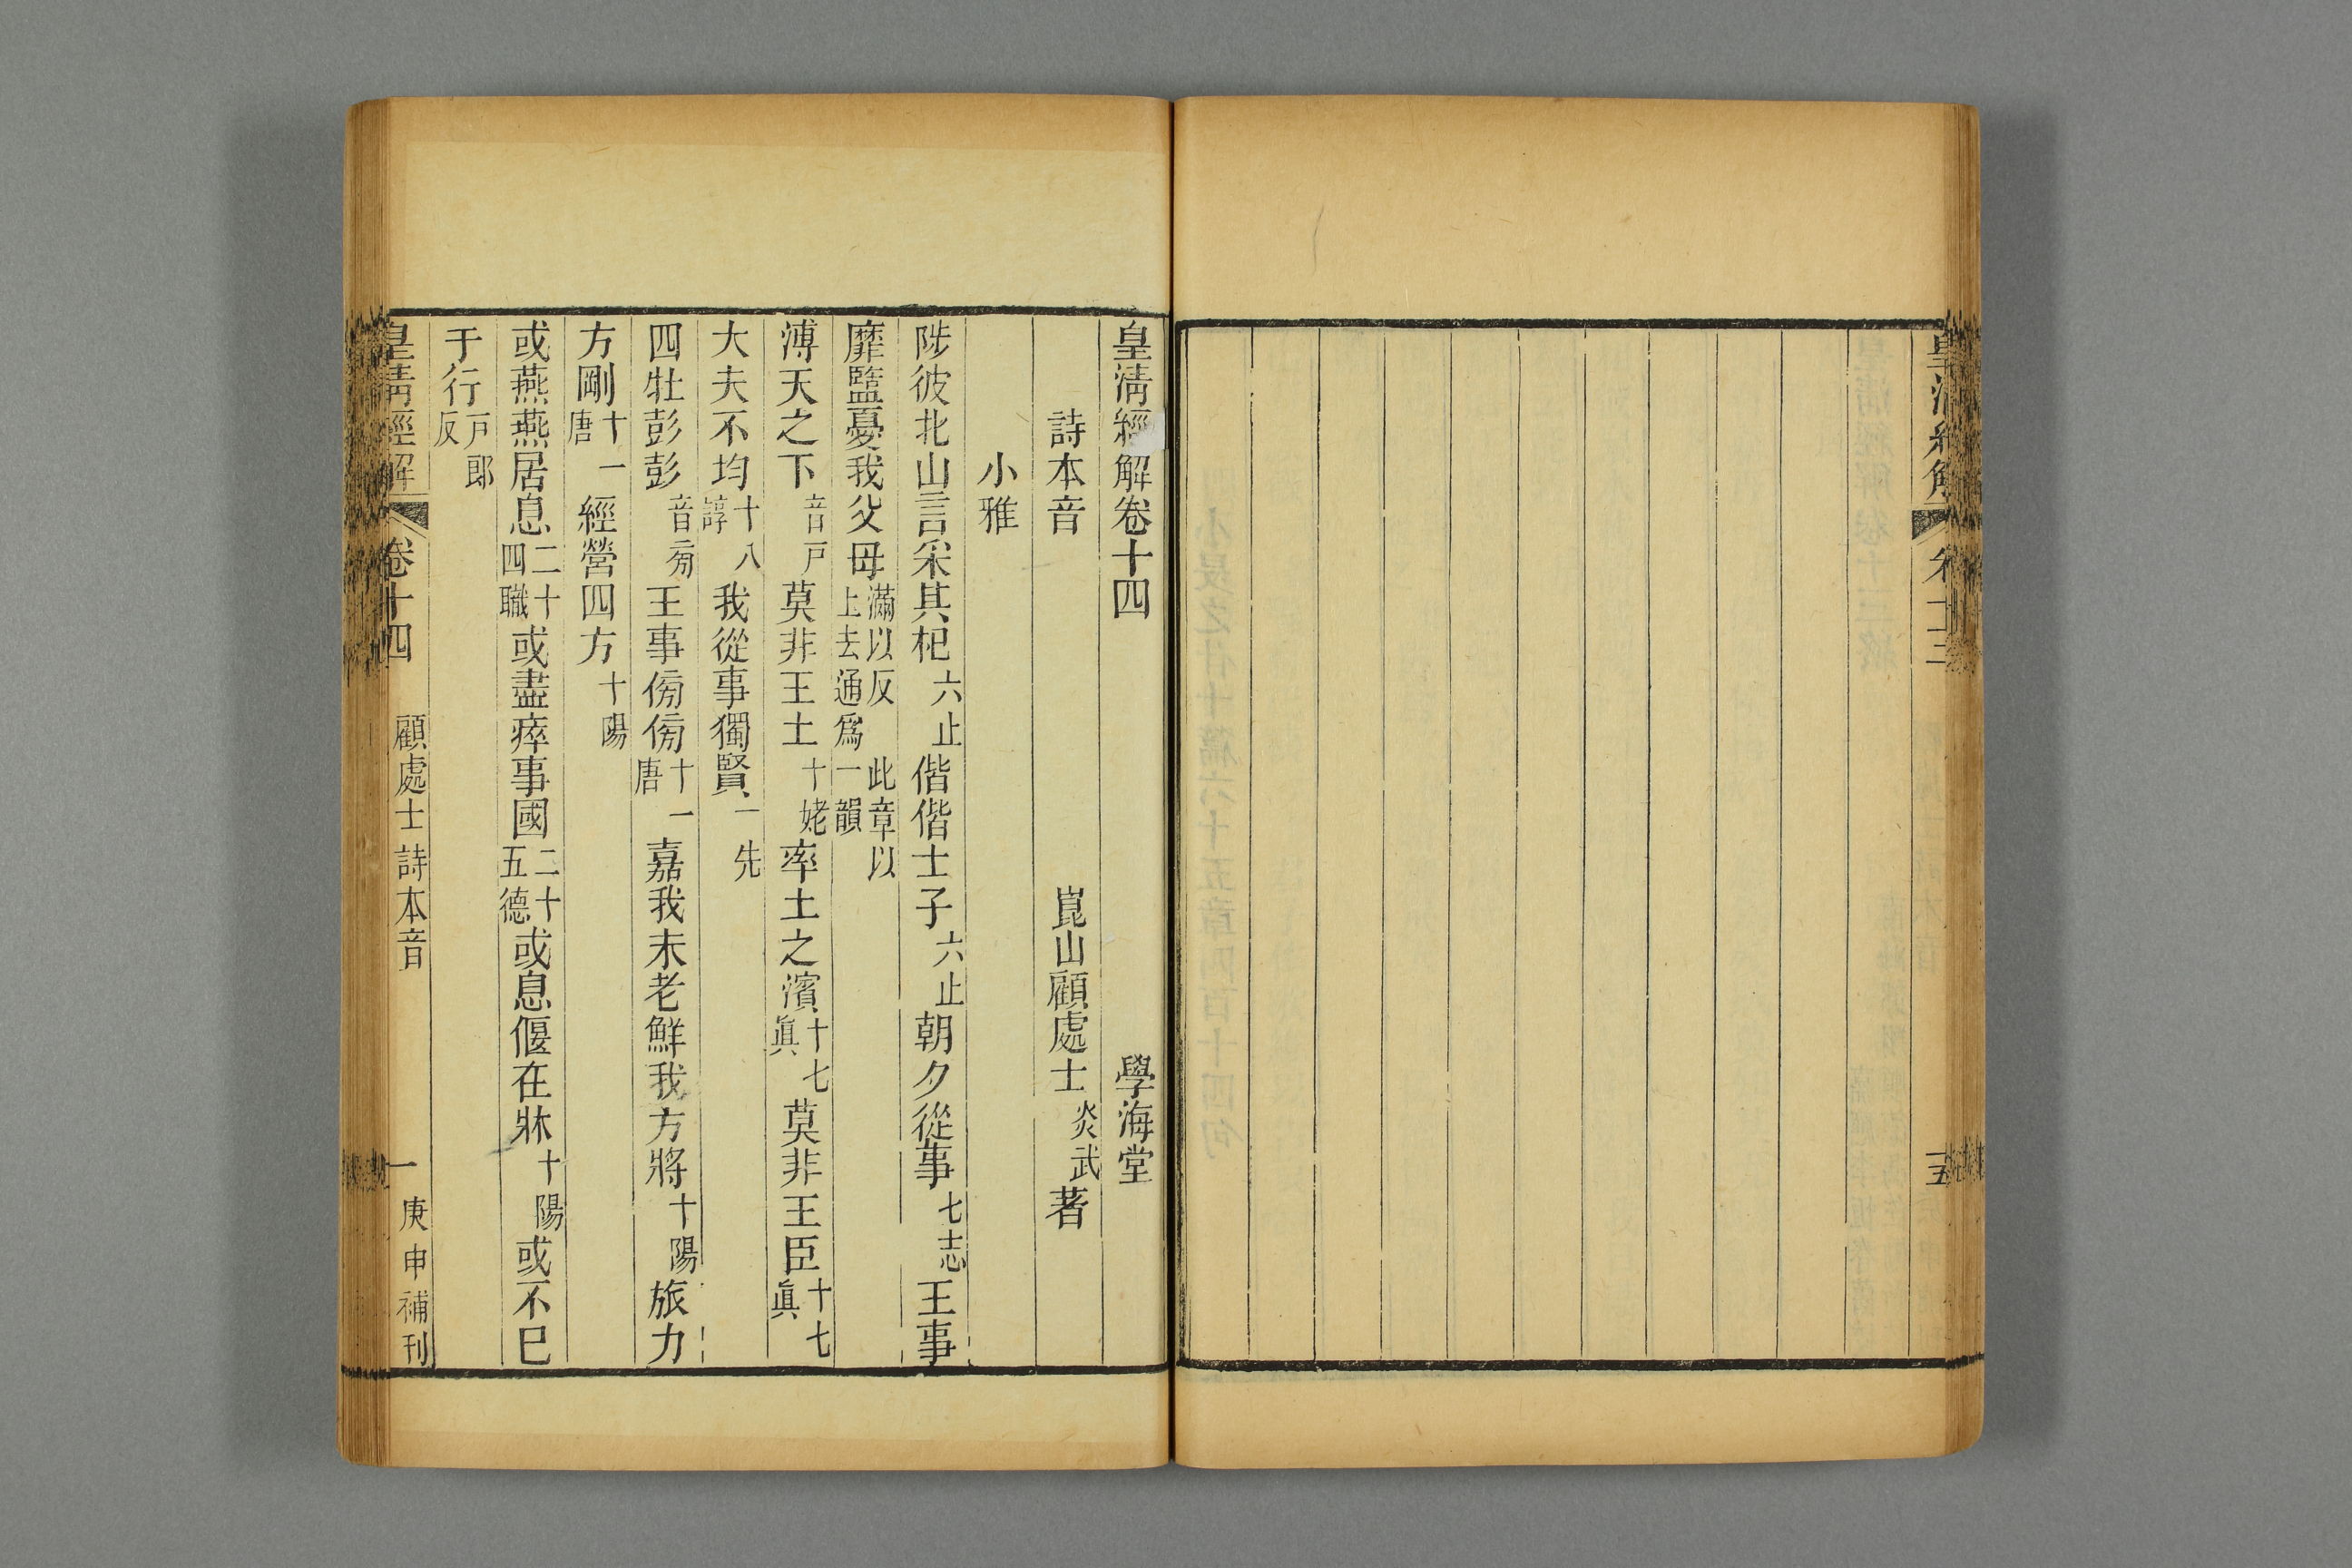 皇淸經解卷十四 學海堂
詩本音 崑山顧處士炎武著
小雅
陟彼北山言采其杞六止偕偕士子六止朝夕從事七志王事
靡盬憂我父母滿以反 此章以上去通爲一韻
溥天之下音戸莫非王土十姥率土之濱十七眞莫非王臣十七眞
大夫不均十八諄我從事獨賢一先
四牡彭彭音旁王事傍傍十一唐嘉我未老鮮我方將十陽旅力
方剛十一唐經營四方十陽
或燕燕居息二十四職或盡瘁事國二十五德或息偃在牀十陽或不巳
于行戸郎反
皇淸經解 卷十四 顧處士詩本音 一 庚申補刊